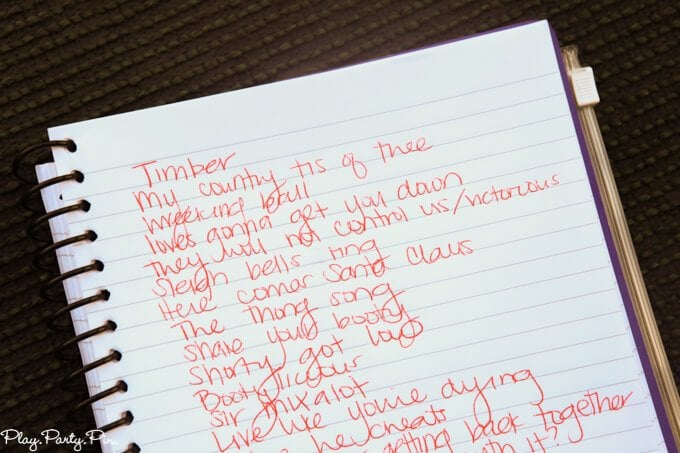 Timber
My country tis of thee
wrecking ball
loves gonna get you down
they will not control us/victorious
Sleigh bells ring
Here comes Santa Claus
The thong song
Shake your booty
Shorty got low
Bootylicious
Sir mixalot
Live like you're dying
he cheats
getting back together
with it?
Play.Party.Pin.